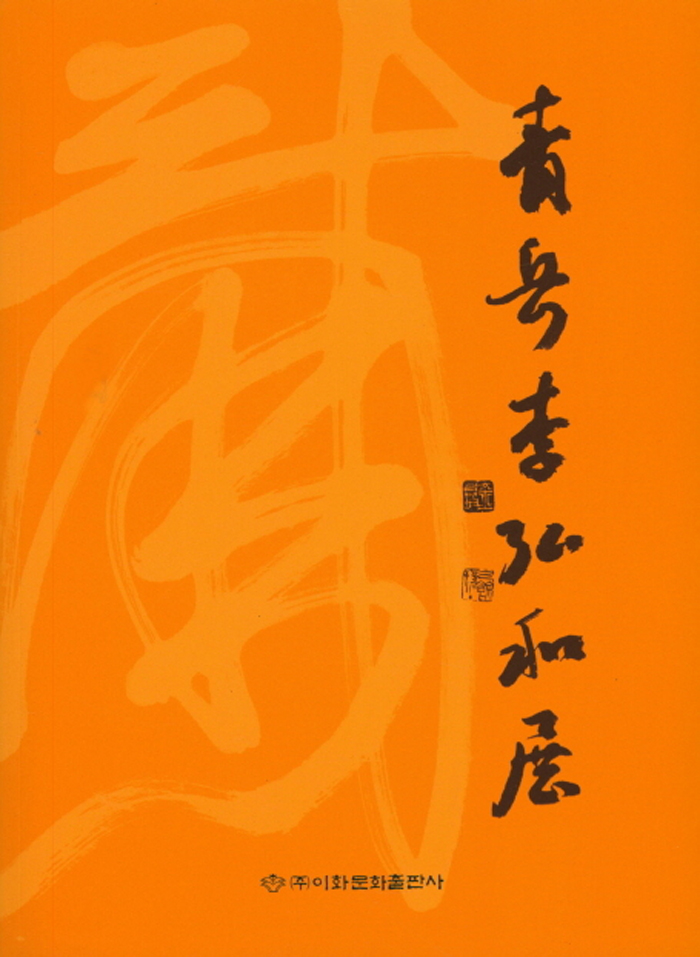 青岳李弘和展
(주)이화문화출판사